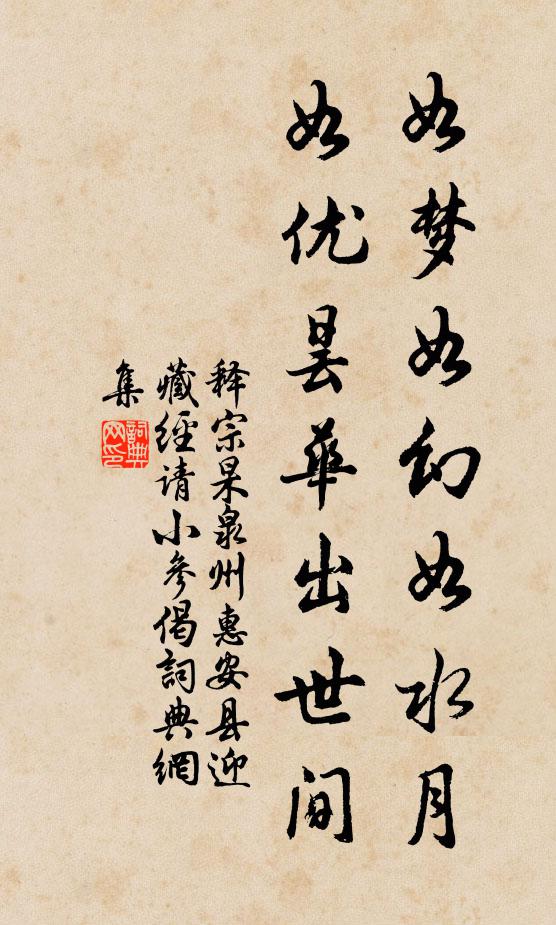 如梦如幻如水月
如优昙华出世间
释宗杲泉州惠安县迎
藏經请小參偈詞典網
集
詞典网印